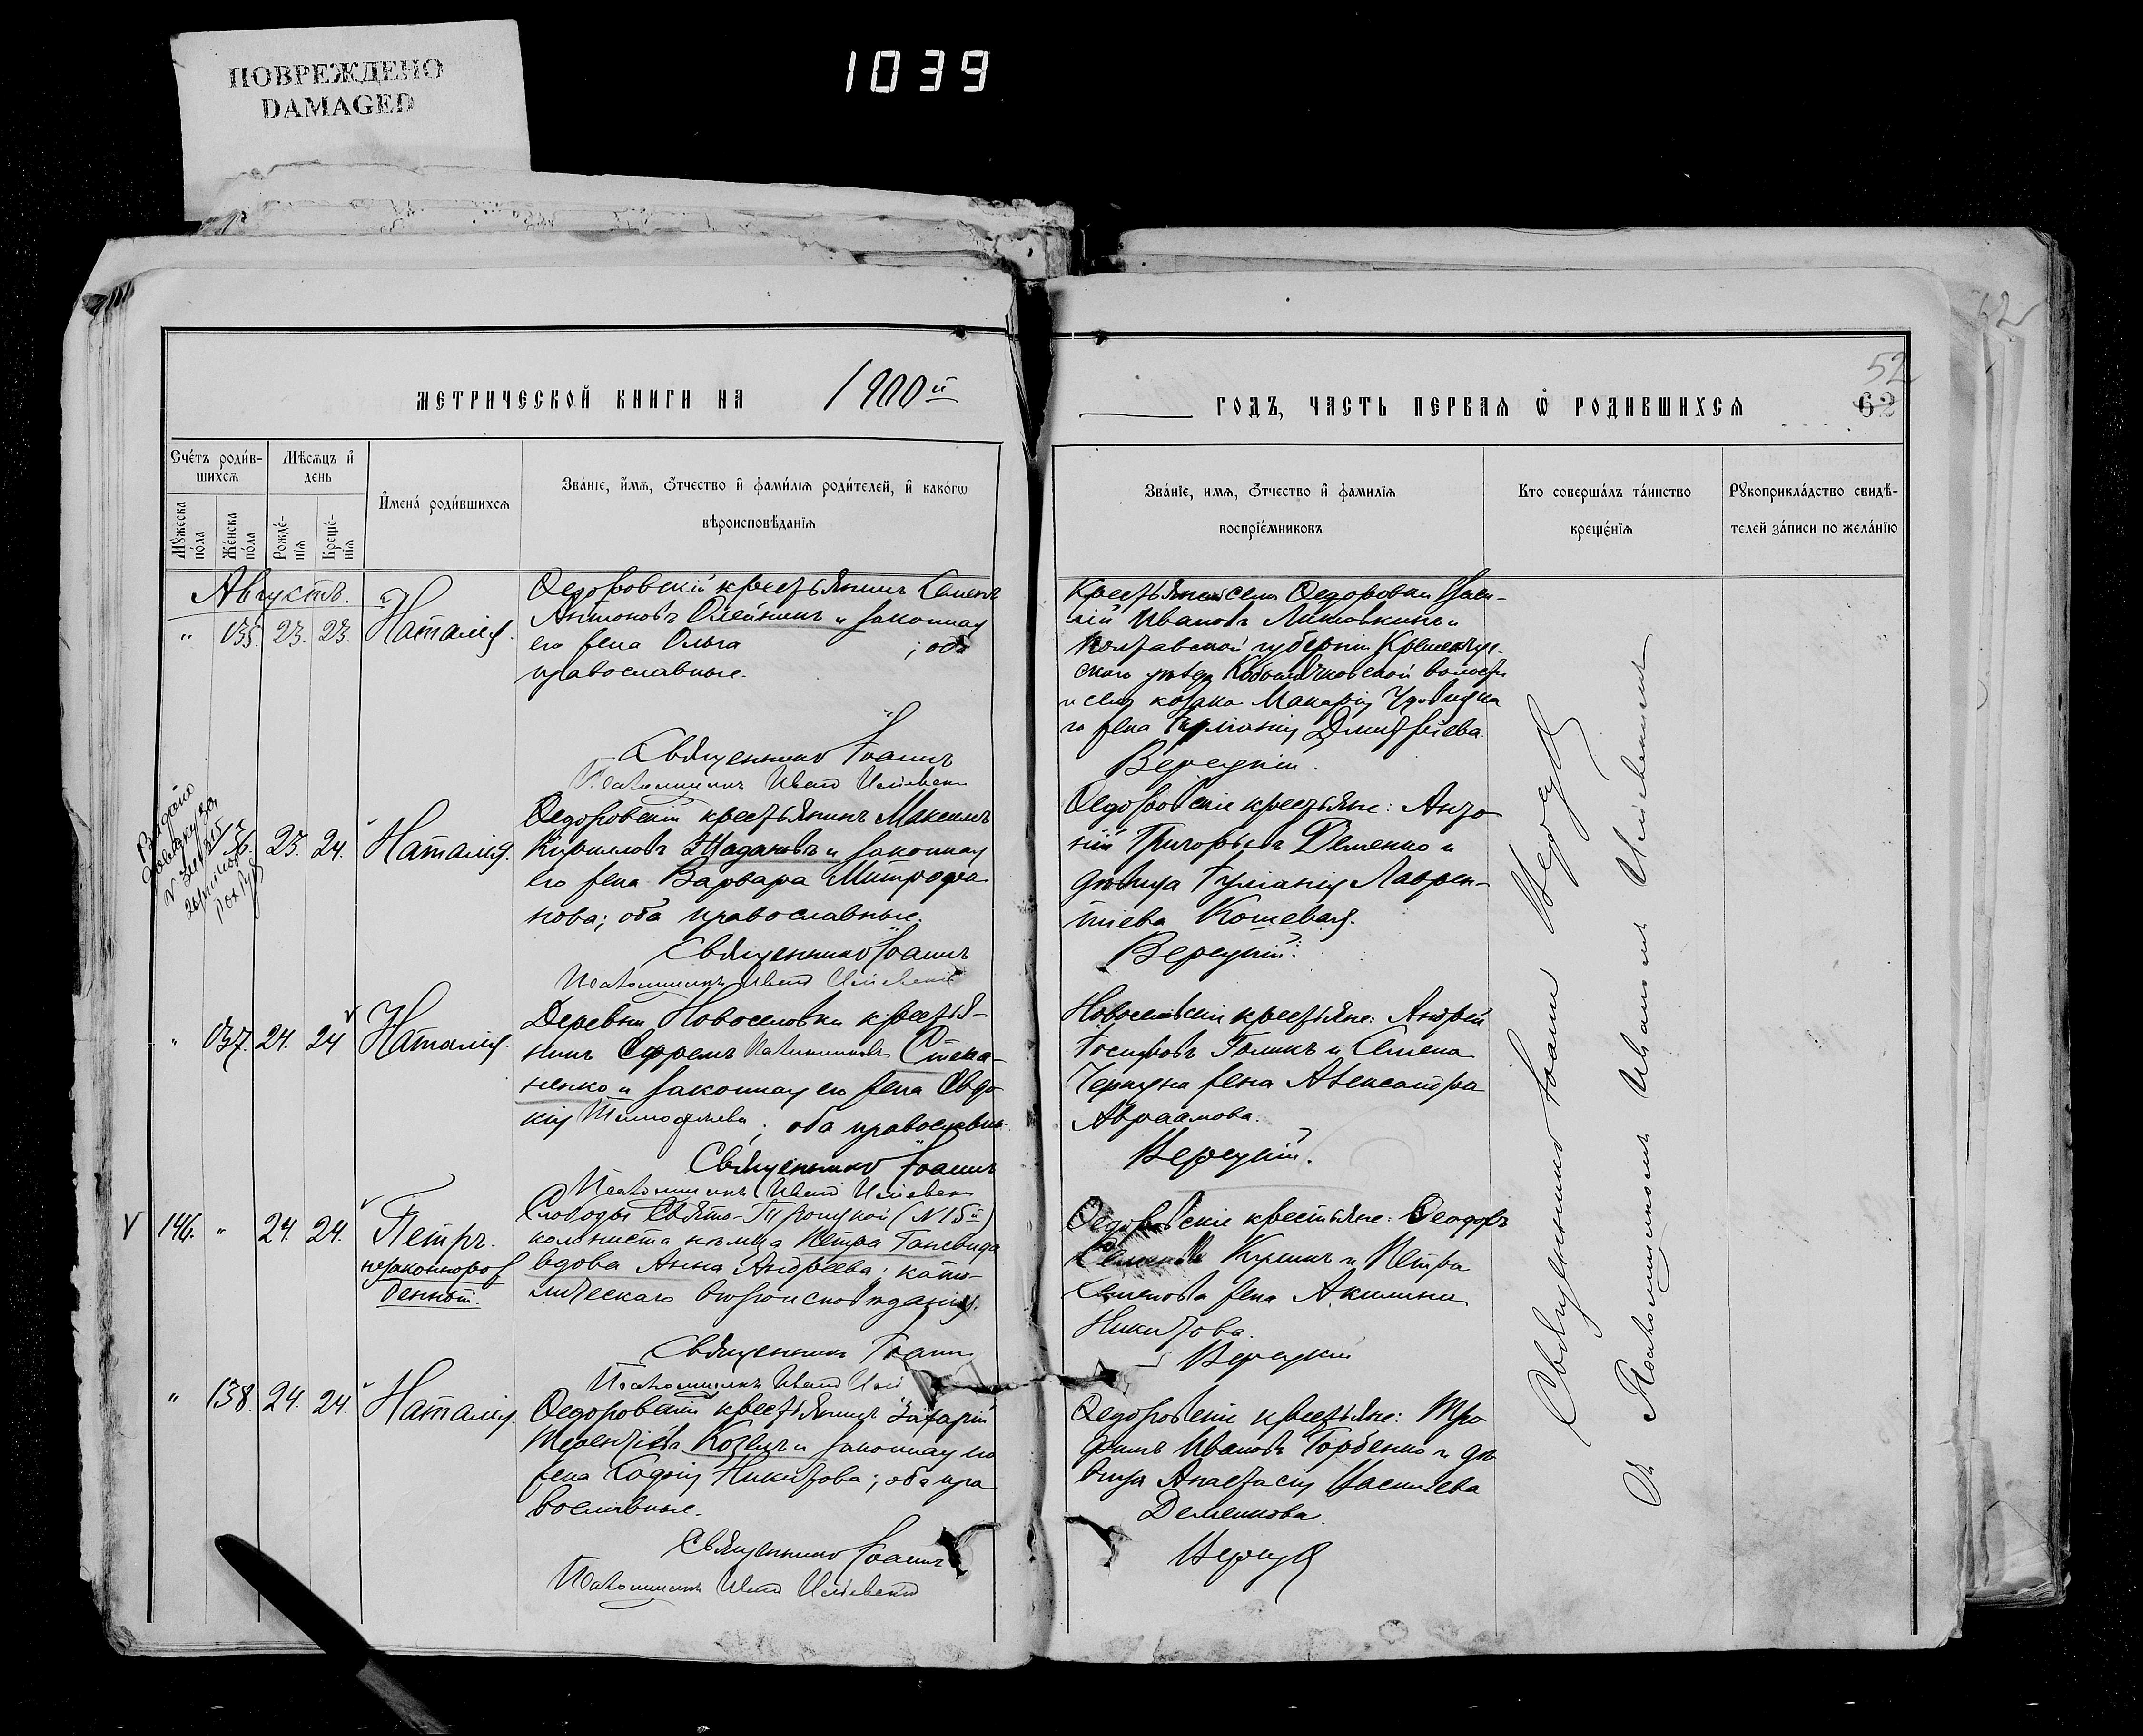 ПОВРЕЖДЕНО
DAMAGED
1039
62
52
62
МЕТРИЧЕСКОЙ КНИГИ НА 1900й
ГОДЪ, ЧАСТЬ ПЕРВАЯ Ѡ РОДИВШИХСЯ
Счетъ родив-
шихся
Мужеска
пола
Женска
пола
Мѣсяцъ и
день
Рожде-
нія
Креще-
нія
Имена родившихся
Званіе, имя, отчество и фамилія родителей, и какогѡ
вѣроисповѣданія
Званіе, имя, отчество и фамилія
воспріемниковъ
Кто совершалъ таинство
крещенія
Рукоприкладство свидѣ-
телей записи по желанію
Августъ.
" 135. 23. 23. Наталія.
Ѳедоровскій крестьянинъ Семенъ
Антоновъ Олейникъ и законная
его жена Ольга ; оба
православные.
Священникъ Іоаннъ
Псаломщикъ Иванъ
Крестьянинъ села Ѳедоровки Васи-
лій Ивановъ Литовкинъ и
Полтавской губерніи Кременчуг-
скаго уѣзда волости
и села козака Макарія
го жена Іуліанія Дмитріева.
Верецкій.
Выдано
136. 23. 24. Наталія.
Ѳедоровскій крестьянинъ Максимъ
Кирилловъ Жадановъ и законная
его жена Варвара Митрофа-
нова; оба православные.
Священникъ Іоаннъ
Псаломщикъ Иванъ
Ѳедоровскіе крестьяне: Анто-
ній Григорьевъ Деменко и
дѣвица Іуліанія Лаврен-
тіева Кошевая.
Верецкій.
" 137. 24. 24 Наталія.
Деревни Новоселовки крестья-
нинъ Ефремъ Степа-
ненко и законная его жена Евдо-
кія Тимофѣева; оба православные.
Священникъ Іоаннъ
Псаломщикъ Иванъ
Новосельскіе крестьяне: Андрей
Іосифовъ Голикъ и Семена
жена Александра
Авраамова.
Верецкій.
V 146. " 24. 24. Петръ.
незаконнорож
денный.
Слободы Свято-Троицкой (N 15й)
колониста нѣмца Петра
вдова Анна Андреева; като-
лическаго вѣроисповѣданія.
Священникъ Іоаннъ
Псаломщикъ Иванъ
Ѳедоровскіе крестьяне: Ѳеодоръ
и Петра
Семенова жена Акилина
Никитова.
Верецкій
" 138. 24. 24. Наталія.
Ѳедоровскій крестьянинъ Захарій
Терентіевъ и законная его
жена Софія Никитова; оба пра
вославные.
Священникъ Іоаннъ
Псаломщикъ Иванъ
Ѳедоровскіе крестьяне: Тро
фимъ Ивановъ Горбенко и дѣ
вица Анастасія Василіева
Деменкова.
Верецкій
Священникъ Іоаннъ Верецкій
и Псаломщикомъ Иваномъ